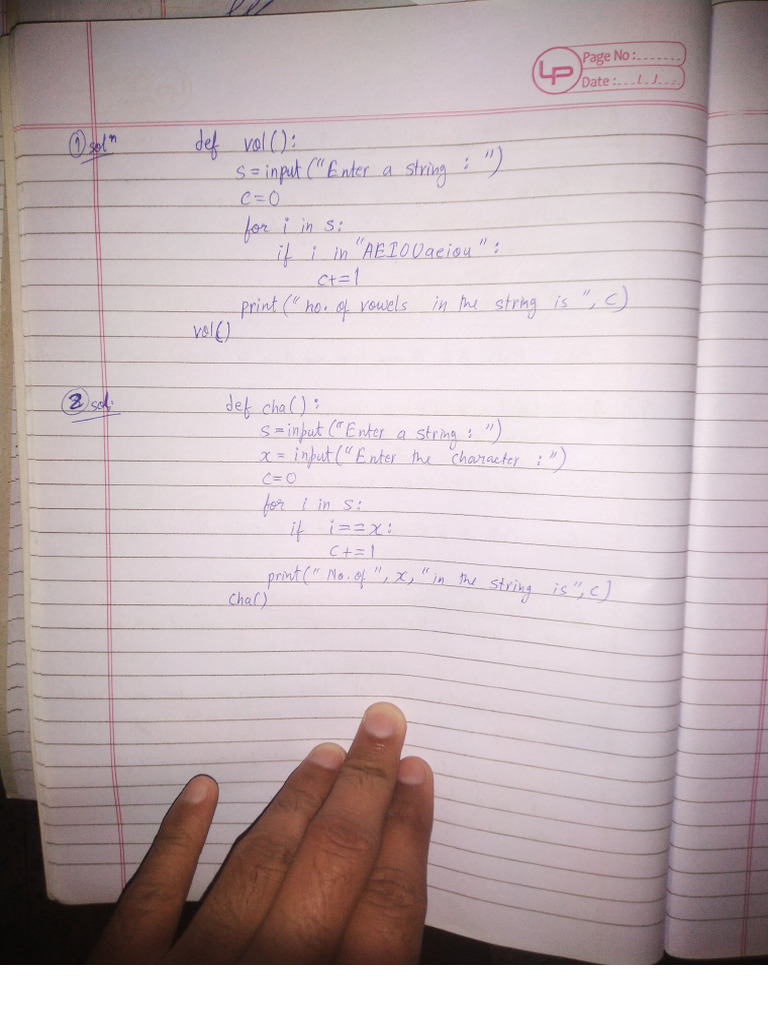 LP
Page No :.......
Date :...1.1....
① solⁿ def vol():
s=input("Enter a string : ")
c=0
for i in s:
if i in "AEIOUaeiou":
c+=1
print("no. of vowels in the string is ", c)
vol()
② sol: def cha():
s=input("Enter a string : ")
x = input("Enter the character :")
c=0
for i in s:
if i==x:
c+=1
print("No. of ", x, "in the string is", c)
cha()